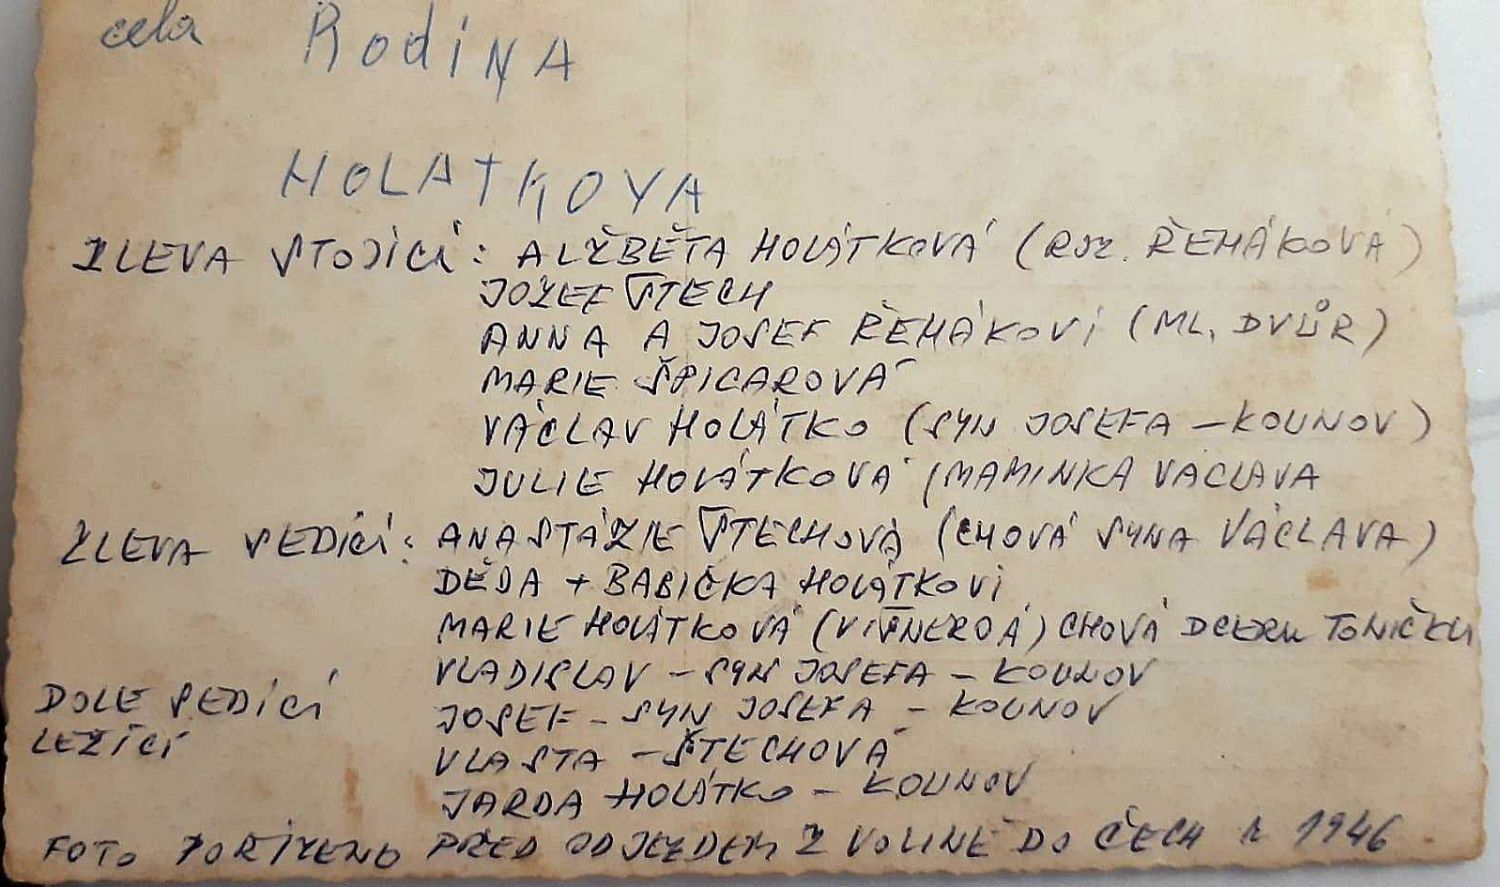 cela Rodina
HOLATKOVA
ZLEVA STOJÍCÍ: ALŽBĚTA HOLÁTKOVÁ (ROZ. ŘEHÁKOVÁ)
JOZEF ŠTECH
ANNA A JOSEF ŘEHÁKOVI (ML. DVŮR)
MARIE ŠPICAROVÁ
VÁCLAV HOLÁTKO (SYN JOSEFA - KOUNOV)
JULIE HOLÁTKOVÁ (MAMINKA VÁCLAVA
ZLEVA SEDÍCÍ: ANASTÁZIE ŠTECHOVÁ (CHOVÁ SYNA VÁCLAVA)
DĚDA + BABIČKA HOLÁTKOVI
MARIE HOLÁTKOVÁ CHOVÁ DCERU TONIČKU
VLADISLAV - SYN JOSEFA - KOUNOV
DOLE SEDÍCÍ JOSEF - SYN JOSEFA - KOUNOV
LEŽÍCÍ VLASTA - ŠTECHOVÁ
JARDA HOLÁTKO - KOUNOV
FOTO POŘÍZENO PŘED ODJEZDEM Z VOLINĚ DO ČECH R 1946